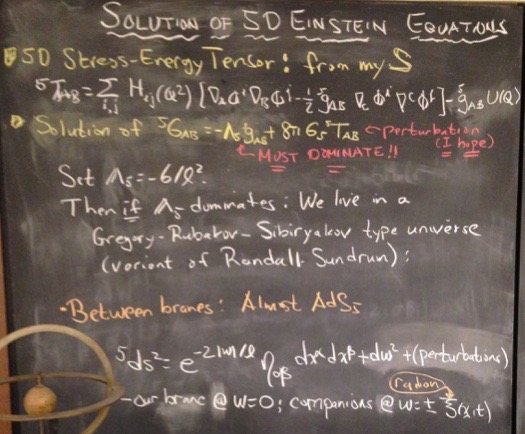 SOLUTION OF 5D EINSTEIN EQUATIONS
5D Stress-Energy Tensor: from my S
⁵T_AB = Σ_i,j H_ij(Q²) [∇_A Φ^i ∇_B Φ^j - ½ ⁵g_AB ∇_C Φ^i ∇^C Φ^j] - ⁵g_AB U(Q)
Solution of ⁵G_AB = -Λ₅ ⁵g_AB + 8π G₅ ⁵T_AB ← perturbation
(I hope)
MUST DOMINATE!!
Set Λ₅ = -6/ℓ².
Then if Λ₅ dominates: We live in a
Gregory-Rubakov-Sibiryakov type universe
(variant of Randall-Sundrum):
• Between branes: Almost AdS₅
⁵ds² = e^(-2|w|/ℓ) η_αβ dx^α dx^β + dw² + (perturbations)
radion
- our brane @ w=0; companions @ w= ± ξ(x,t)